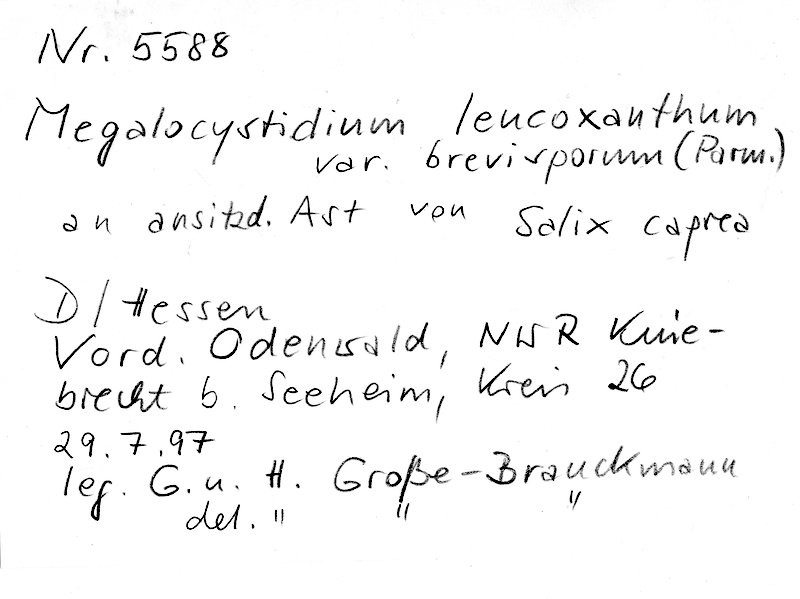 Nr. 5588
Megalocystidium leucoxanthum
var. brevisporum (Parm.)
an ansitzd. Ast von Salix caprea
D/Hessen
Vord. Odenwald, NWR Knie-
brecht b. Seeheim, Kreis 26
29.7.97
leg. G. u. H. Große-Brauckmann
det. " " "